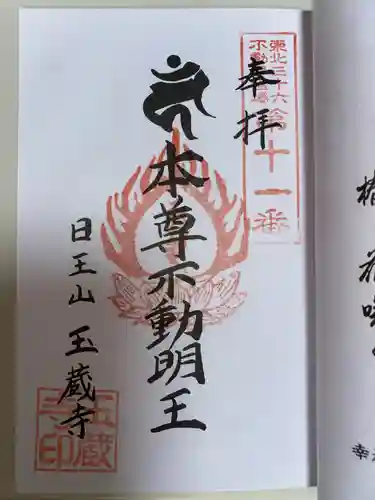 奉拝
東北三十六
不動尊霊場
第十一番
本尊不動明王
日王山 玉蔵寺
玉蔵
寺印